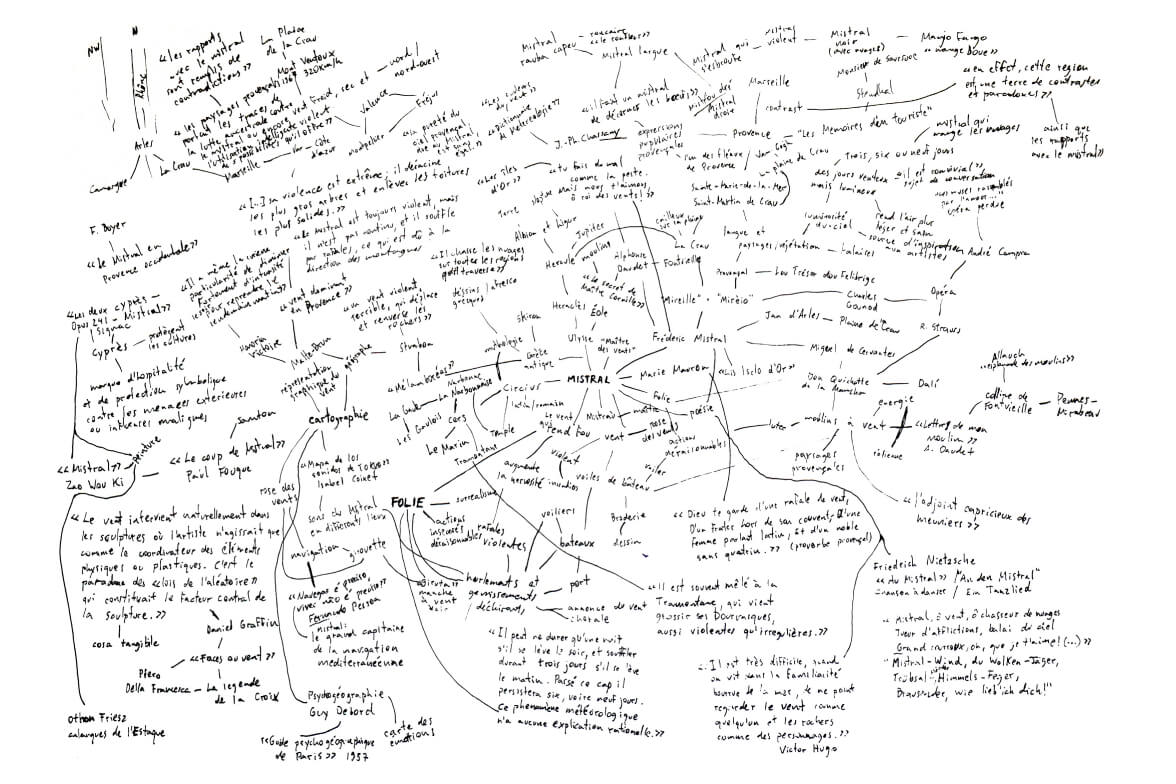 NW
N
Rhône
Arles
Camargue
La Crau
Marseille
Var
Côte
d'azur
montpellier
Valence
Fréjus
nord /
nord-ouest
La Plaine
de la Crau
Mont Ventoux
320km/h
«les rapports
avec le mistral
sont remplis de
contradictions»
«les paysages provençaux
portent les traces de
la lutte ancestrale contre vent froid, sec et
le mistral ou encore violent
F. Boyer
«Le Mistral en
Provence occidentale»
«[...] sa violence est extrême; il déracine
les plus gros arbres et enlève les toitures
les plus solides.»
«Le mistral est toujours violent, mais
il n'est pas continu, et il souffle
par rafales, ce qui est dû à la
direction des montagnes
«la pureté du
ciel provençal
«vent dominant
en Provence»
«un vent violent,
terrible, qui déplace
et renverse les
rochers»
Strabon
Malte-Brun
géographe
représentation
graphique
vent
cartographie
«Il chasse les nuages
sur toutes les régions
qu'il traverse»
dessins / fresque
grecques
Skiron
mythologie
Grèce
antique
«Mélamboréas»
Narbonne
La Narbonnaise
Circius
latin/romain
Les Gaulois
Cers
Le Marin
Tramontane
Temple
Mistral
rauba capeu
Mistral largue
Mistral qui
s'esbroufe
mistral
violent
Mistral
noir
(avec nuages)
Manjo Fango
"mange boue"
Marseille
contrast
Monsieur de Saussure
Stendhal
«en effet, cette région
est une terre de contrastes
et paradoxes»
ainsi que
les rapports
avec le mistral»
Provence
"Les Mémoires d'un touriste"
mistral qui
mange les nuages
«il fait un mistral
à décorner les bœufs»
J.-Ph. Chassany
expressions
populaires
provençales
«tu fais du mal
comme la peste.
mais nous t'aimons,
ô roi des vents!»
«Les îles
d'Or»
Terre
un des fléaux
de Provence
Van Gogh
plaine de Crau
Sainte-Marie-de-la-Mer
Saint-Martin de Crau
Trois, six ou neuf jours
des jours venteux
mais lumineux
«il est convivial»
sujet de conversation
luminosité
du ciel
rend l'air plus
léger et sain
source d'inspiration
aux artistes
André Campra
Opéra
R. Strauss
langue et
paysages/végétation
falaises
Provençal
Lou Trésor dou Felibrige
Albion et Ligure
Jupiter
Hercule
moulins
Alphonse
Daudet
Fontvieille
La Crau
cailloux
sur la plaine
«Le secret de
Maître Cornille»
Héraclès
Éole
Ulysse
"Maître
des vents"
"Mireille" • "Mirèio"
Charles
Gounod
Frédéric Mistral
Jan d'Arles
Plaine de Crau
MISTRAL
Marie Mauron
«Lis Isclo d'Or»
Miguel de Cervantes
Don Quichotte
de la Mancha
Dalí
énergie
Folie
poésie
lutte
moulins à vent
éolienne
paysages
provençales
«Lettres de mon
moulin»
A. Daudet
Allauch
«esplanade des moulins»
colline de
Fontvieille
Pennes-
Mirabeau
«l'adjoint capricieux des
meuniers»
«Les deux cyprès –
Opus 241 – Mistral»
Signac
Cyprès
protègent
les cultures
marque d'hospitalité
et de protection symbolique
contre les menaces extérieures
ou influences malignes
santon
peinture
«Mistral»
Zao Wou Ki
«Le coup de Mistral»
Paul Fouque
rose des
vents
«Mapa de los
sonidos de Tokyo»
Isabel Coixet
sons du Mistral
en différents lieux
navigation
girouette
«Navegar é preciso,
viver não é preciso»
Fernando Pessoa
mistral:
le grand capitaine
de la navigation
méditerranéenne
Le vent
qui
rend fou
vent
maître
rose
des vents
actions
déraisonnables
augmente
la nervosité
violent
incendies
voiles de bâteau
voilier
FOLIE
surréalisme
actions
insensées
déraisonnables
rafales
violentes
voiliers
Broderie
dessin
bateaux
port
hurlements et
gémissements
déchirants
«Biruta»
manche
à vent
voir
annonce de vent
chorale
«Le vent intervient naturellement dans
les sculptures où l'artiste n'agissait que
comme le coordinateur des éléments
physiques ou plastiques. C'est le
paradoxe des «lois de l'aléatoire»
qui constituait le facteur central de
la sculpture.»
cosa tangible
Daniel Graffin
«Faces au vent»
Piero
Della Francesca – La légende
de la Croix
Othon Friesz
calanques de l'Estaque
Psychogéographie
Guy Debord
«Guide psychogéographique
de Paris» 1957
carte des
émotions
«Dieu te garde d'une rafale de vent,
D'un frater hors de son couvent, D'une
femme parlant latin, Et d'un noble
sans quatrin.» (proverbe provençal)
«Il est souvent mêlé à la
Tramontane, qui vient
grossir ses bourrasques,
aussi violentes qu'irregulières.»
«Il peut ne durer qu'une nuit
s'il se lève le soir, et souffler
durant trois jours s'il se lève
le matin. Passé ce cap il
persistera six, voire neuf jours.
Ce phénomène météorologique
n'a aucune explication rationelle.»
«Il est très difficile, quand
on vit dans la familiarité
bourrue de la mer, de ne point
regarder le vent comme
quelqu'un et les rochers
comme des personnages.»
Victor Hugo
Friedrich Nietzsche
«Au Mistral» "An den Mistral"
chanson à danser / Ein Tanzlied
«Mistral, ô vent, ô chasseur de nuages
Tueur d'afflictions, balai du ciel
Grand carroux, oh, que je t'aime! (...)»
"Mistral-Wind, du Wolken-Jäger,
Trübsal-, Himmels-Feger,
Brausender, wie lieb'ich dich!"